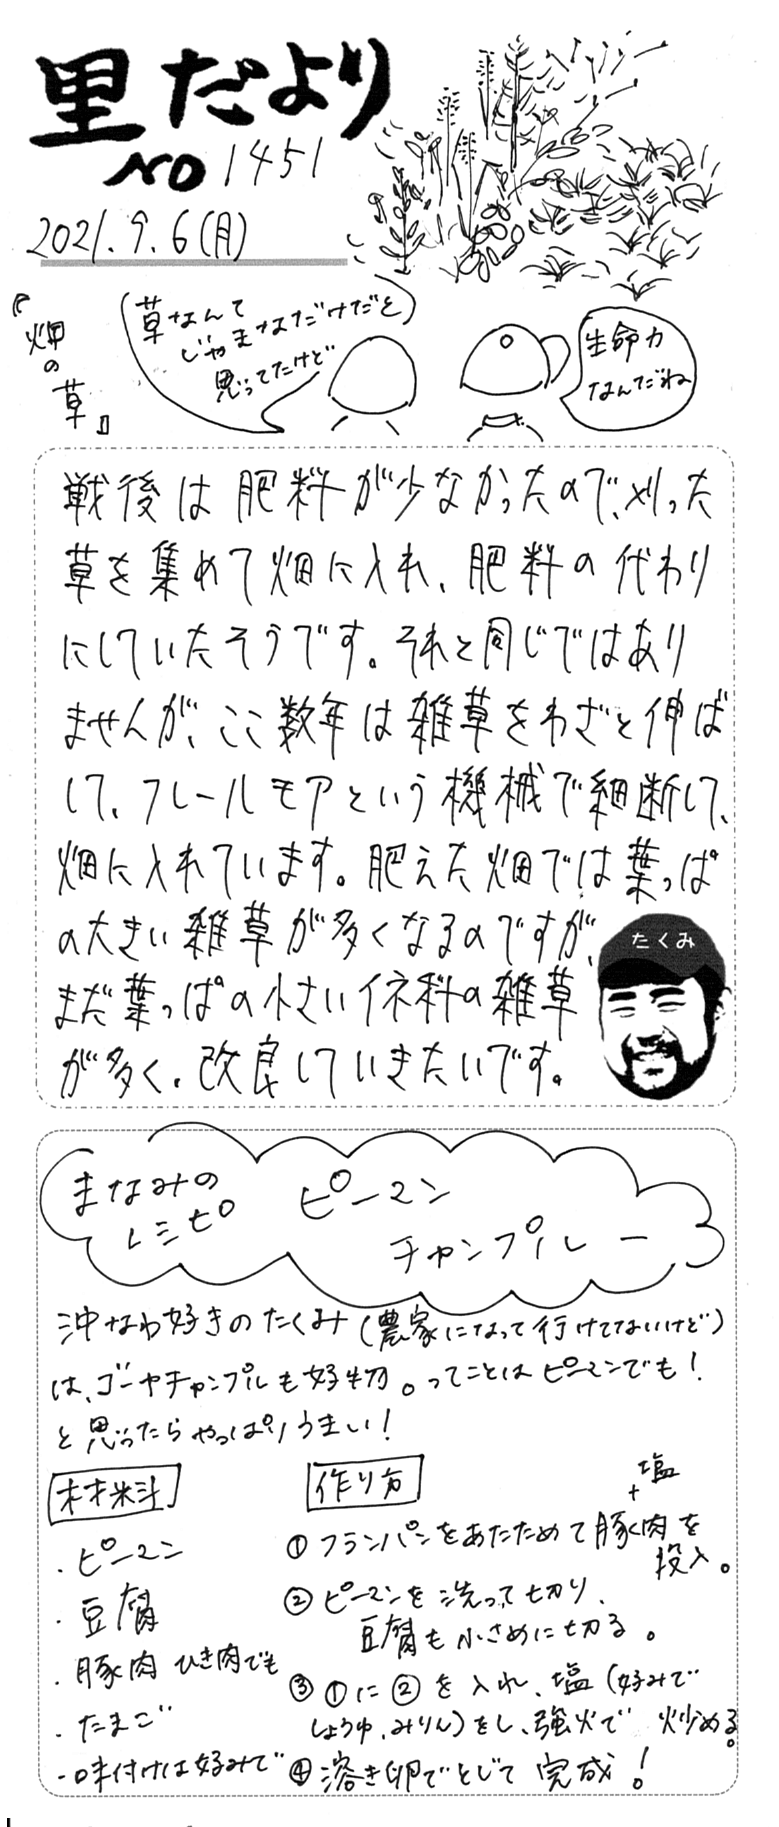 里だより
NO 1451
2021.9.6(月)
『畑の草』
草なんて
じゃまなだけだと
思ってたけど
生命力
なんだね
戦後は肥料が少なかったので、刈った
草を集めて畑に入れ、肥料の代わり
にしていたそうです。それと同じではあり
ませんが、ここ数年は雑草をわざと伸ば
して、フレールモアという機械で細断して、
畑に入れています。肥えた畑では葉っぱ
の大きい雑草が多くなるのですが、
まだ葉っぱの小さいイネ科の雑草
が多く、改良していきたいです。
たくみ
まなみの
レシピ
ピーマン
チャンプルー
沖なわ好きのたくみ(農家になって行けてないけど)
は、ゴーヤチャンプルも好物。ってことはピーマンでも!
と思ったらやっぱりうまい!
材料
・ピーマン
・豆腐
・豚肉 ひき肉でも
・たまご
・味付けは好みで
作り方
①フランパンをあたためて豚肉+塩を
投入。
②ピーマンを洗って切り、
豆腐も小さめに切る。
③①に②を入れ、塩(好みで
しょうゆ、みりん)をし、強火で炒める。
④溶き卵でとじて完成!